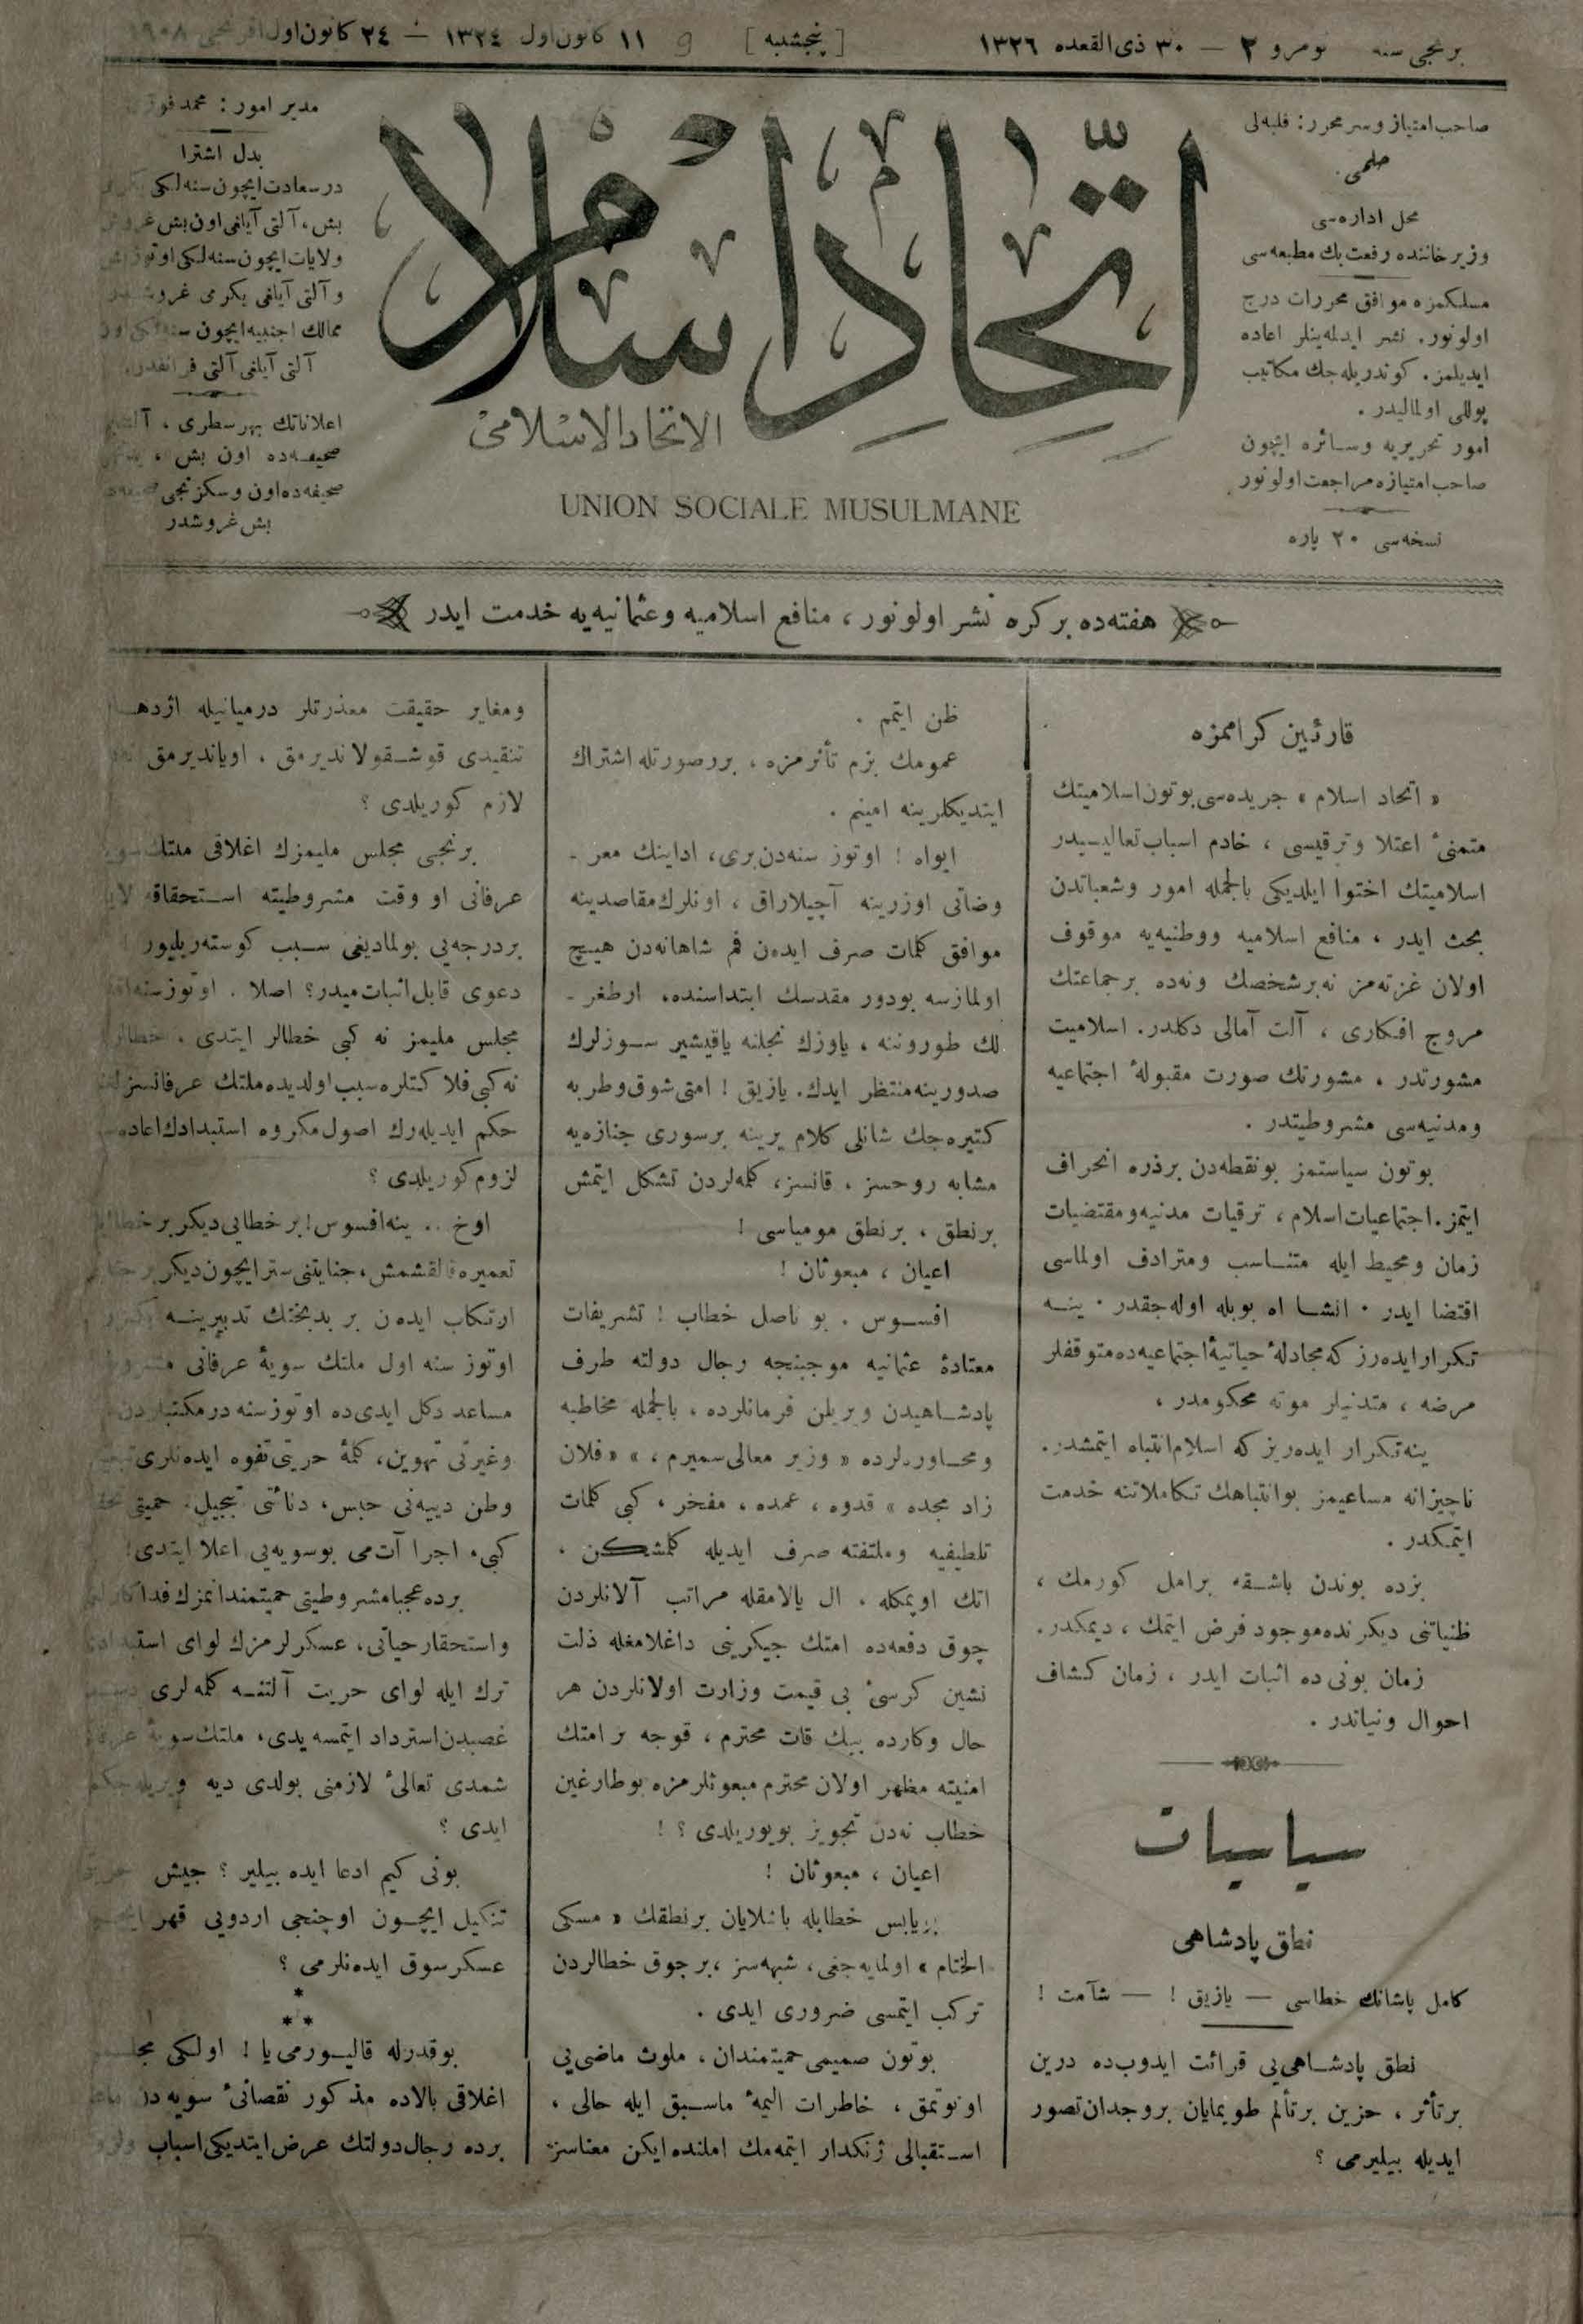 برنجی سنه نومرو ٢ — ٣٠ ذی القعده ١٣٢٦ [ پنجشنبه ] ١١ كانون اول ١٣٢٤ — ٢٤ كانون اول
صاحب امتیاز و سر محرر: قلبه‌لی
حلمی
محل اداره‌سی
وزیر خاننده رفعت بك مطبعه‌سی
مسلكمزه موافق محررات درج
اولونور. نشر ایدلمه‌ینلر اعاده
ایدیلمز. كوندریله‌جك مكاتیب
پوللی اولمالیدر .
امور تحریریه و سائره ایچون
صاحب امتیازه مراجعت اولونور .
نسخه‌سی ٢٠ پاره
اتّحاد اسلام
الاتحاد الاسلامی
UNION SOCIALE MUSULMANE
مدیر امور : محمد
بدل اشترا
درسعادت ایچون سنه‌لكی
بش، آلتی آیلغی اون بش
ولایات ایچون سنه‌لكی
و آلتی آیلغی یكرمی
ممالك اجنبیه ایچون
آلتی آیلغی آلتی فرانقدر.
اعلاناتك بهر سطری ،
صحیفه‌ده اون بش ،
صحیفه‌ده اون و سكزنجی
بش غروشدر
هفته‌ده بر كره نشر اولونور ، منافع اسلامیه و عثمانیه‌یه خدمت ایدر
قارئین كراممزه
« اتحاد اسلام » جریده‌سی بوتون اسلامیتك
متمنیٔ اعتلا و ترقیسی ، خادم اسباب تعالیسیدر
اسلامیتك احتوا ایلدیكی بالجمله امور و شعباتدن
بحث ایدر ، منافع اسلامیه و وطنیه‌یه موقوف
اولان غزته‌مز نه بر شخصك و نه‌ده بر جماعتك
مروج افكاری ، آلت آمالی دكلدر. اسلامیت
مشورتدر ، مشورتك صورت مقبولهٔ اجتماعیه
و مدنیه‌سی مشروطیتدر .
بوتون سیاستمز بو نقطه‌دن بر ذره انحراف
ایتمز. اجتماعیات اسلام ، ترقیات مدنیه و مقتضیات
زمان و محیط ایله متناسب و مترادف اولماسی
اقتضا ایدر . انشا اه بویله اوله‌جقدر . ینه
تكرار ایده‌رز كه مجادلهٔ حیاتیهٔ اجتماعیه‌ده متوقفلر
مرضه ، متدنیلر موته محكومدر ،
ینه تكرار ایده‌ریز كه اسلام انتباه ایتمشدر.
ناچیزانه مساعیمز بو انتباهك تكاملاتنه خدمت
ایتمكدر .
بزده بوندن باشقه بر امل كورمك ،
ظنیاتنی دیكرنده موجود فرض ایتمك ، دیمكدر.
زمان بونی ده اثبات ایدر ، زمان كشاف
احوال و نیاتدر .
سیاسیات
نطق پادشاهی
كامل پاشانك خطاسی — یازیق ! — شآمت !
نطق پادشاهی‌یی قرائت ایدوب ده درین
بر تأثر ، حزین بر تألم طویمایان بر وجدان تصور
ایدیله بیلیرمی ؟
ظن ایتمم .
عمومك بزم تأثرمزه ، بر صورتله اشتراك
ایتدیكلرینه امینم .
ایواه ! اوتوز سنه‌دن بری، اداینك معر -
وضاتی اوزرینه آچیلاراق ، اونلرك مقاصدینه
موافق كلمات صرف ایدەن فم شاهانه‌دن هیچ
اولمازسه بو دور مقدسك ابتداسنده، ارطغر -
لك طورونیه ، یاوزك نجلنه یاقیشیر سوزلرك
صدورینه منتظر ایدك. یازیق ! امتی شوق و طربه
كتیره‌جك شانلی كلام یرینه بر سوری جنازه‌یه
مشابه روحسز ، قانسز، كلمه‌لردن تشكل ایتمش
بر نطق ، بر نطق مومیاسی !
اعیان ، مبعوثان !
افسوس . بو ناصل خطاب ! تشریفات
معتادهٔ عثمانیه موجبنجه رجال دولته طرف
پادشاهیدن ویریلن فرمانلرده ، بالجمله مخاطبه
و محاوره‌لرده « وزیر معالی سمیرم ، » « فلان
زاد مجده » قدوه ، عمده ، مفخر ، كبی كلمات
تلطیفیه و ملتفته صرف ایدیله كلمشكن .
اتك اوپمكله ، ال یالامقله مراتب آلانلردن
چوق دفعه‌ده امتك جیكرینی داغلامغله ذلت
نشین كرسیٔ بی قیمت وزارت اولانلردن هر
حال و كارده بیك قات محترم ، قوجه بر امتك
امنیته مظهر اولان محترم مبعوثلرمزه بو طارغین
خطاب نه‌دن تجویز بویوریلدی ؟ !
اعیان ، مبعوثان !
بر یابس خطابله باشلایان بر نطقك « مسكی
الختام » اولمایه‌جغی ، شبهه‌سز ، بر چوق خطالردن
تركب ایتمسی ضروری ایدی .
بوتون صمیمی حمیتمندان ، ملوث ماضی‌یی
اونوتمق ، خاطرات الیمهٔ ماسبق ایله حالی ،
استقبالی ژنكدار ایتمه‌مك املنده ایكن معناسز
و مغایر حقیقت معذرتلر درمیانیله
تنقیدی قوشقولاندیرمق ، اویاندیرمق
لازم كوریلدی ؟
برنجی مجلس ملیمزك اغلاقی ملتك
عرفانی او وقت مشروطیته استحقاقه
بر درجه‌یی بولمادیغی سبب كوستریلیور
دعوی قابل اثبات میدر؟ اصلا . اوتوز سنه
مجلس ملیمز نه كبی خطالر ایتدی .
نه كبی فلاكتلره سبب اولدیده ملتك
حكم ایدیله‌رك اصول مكروه استبدادك
لزوم كوریلدی ؟
اوخ .. ینه افسوس! بر خطایی دیكر بر
تعمیره قالقشمش ، جنایتنی ستر ایچون دیكر بر
ارتكاب ایدەن بر بدبختك تدبیرینه
اوتوز سنه اول ملتك سویهٔ عرفانی
مساعد دكل ایدی ده اوتوز سنه در
و غیرتی تهوین ، كلمهٔ حریتی تفوه ایده‌نلری
وطن دییه‌نی حبس ، دنائتی تبجیل ، حمیتی
كبی ، اجرا آت می بو سویه‌یی اعلا ایتدی!
برده عجبا مشروطیتی حمیتمندانمزك
و استحقار حیاتی ، عسكرلرمزك لوای
ترك ایله لوای حریت آلتنه كلمه‌لری
غصبدن استرداد ایتمسه‌یدی ، ملتك سویهٔ
شمدی تعالیٔ لازمنی بولدی دیه
ایدی ؟
بونی كیم ادعا ایده بیلیر ؟ جیش
تنكیل ایچون اوچنجی اردویی قهر
عسكر سوق ایده‌نلرمی ؟
* * *
بو قدرله قالیورمی یا ! اولكی
اغلاقی بالاده مذكور نقصانیٔ سویه‌دن
برده رجال دولتك عرض ایتدیكی اسباب